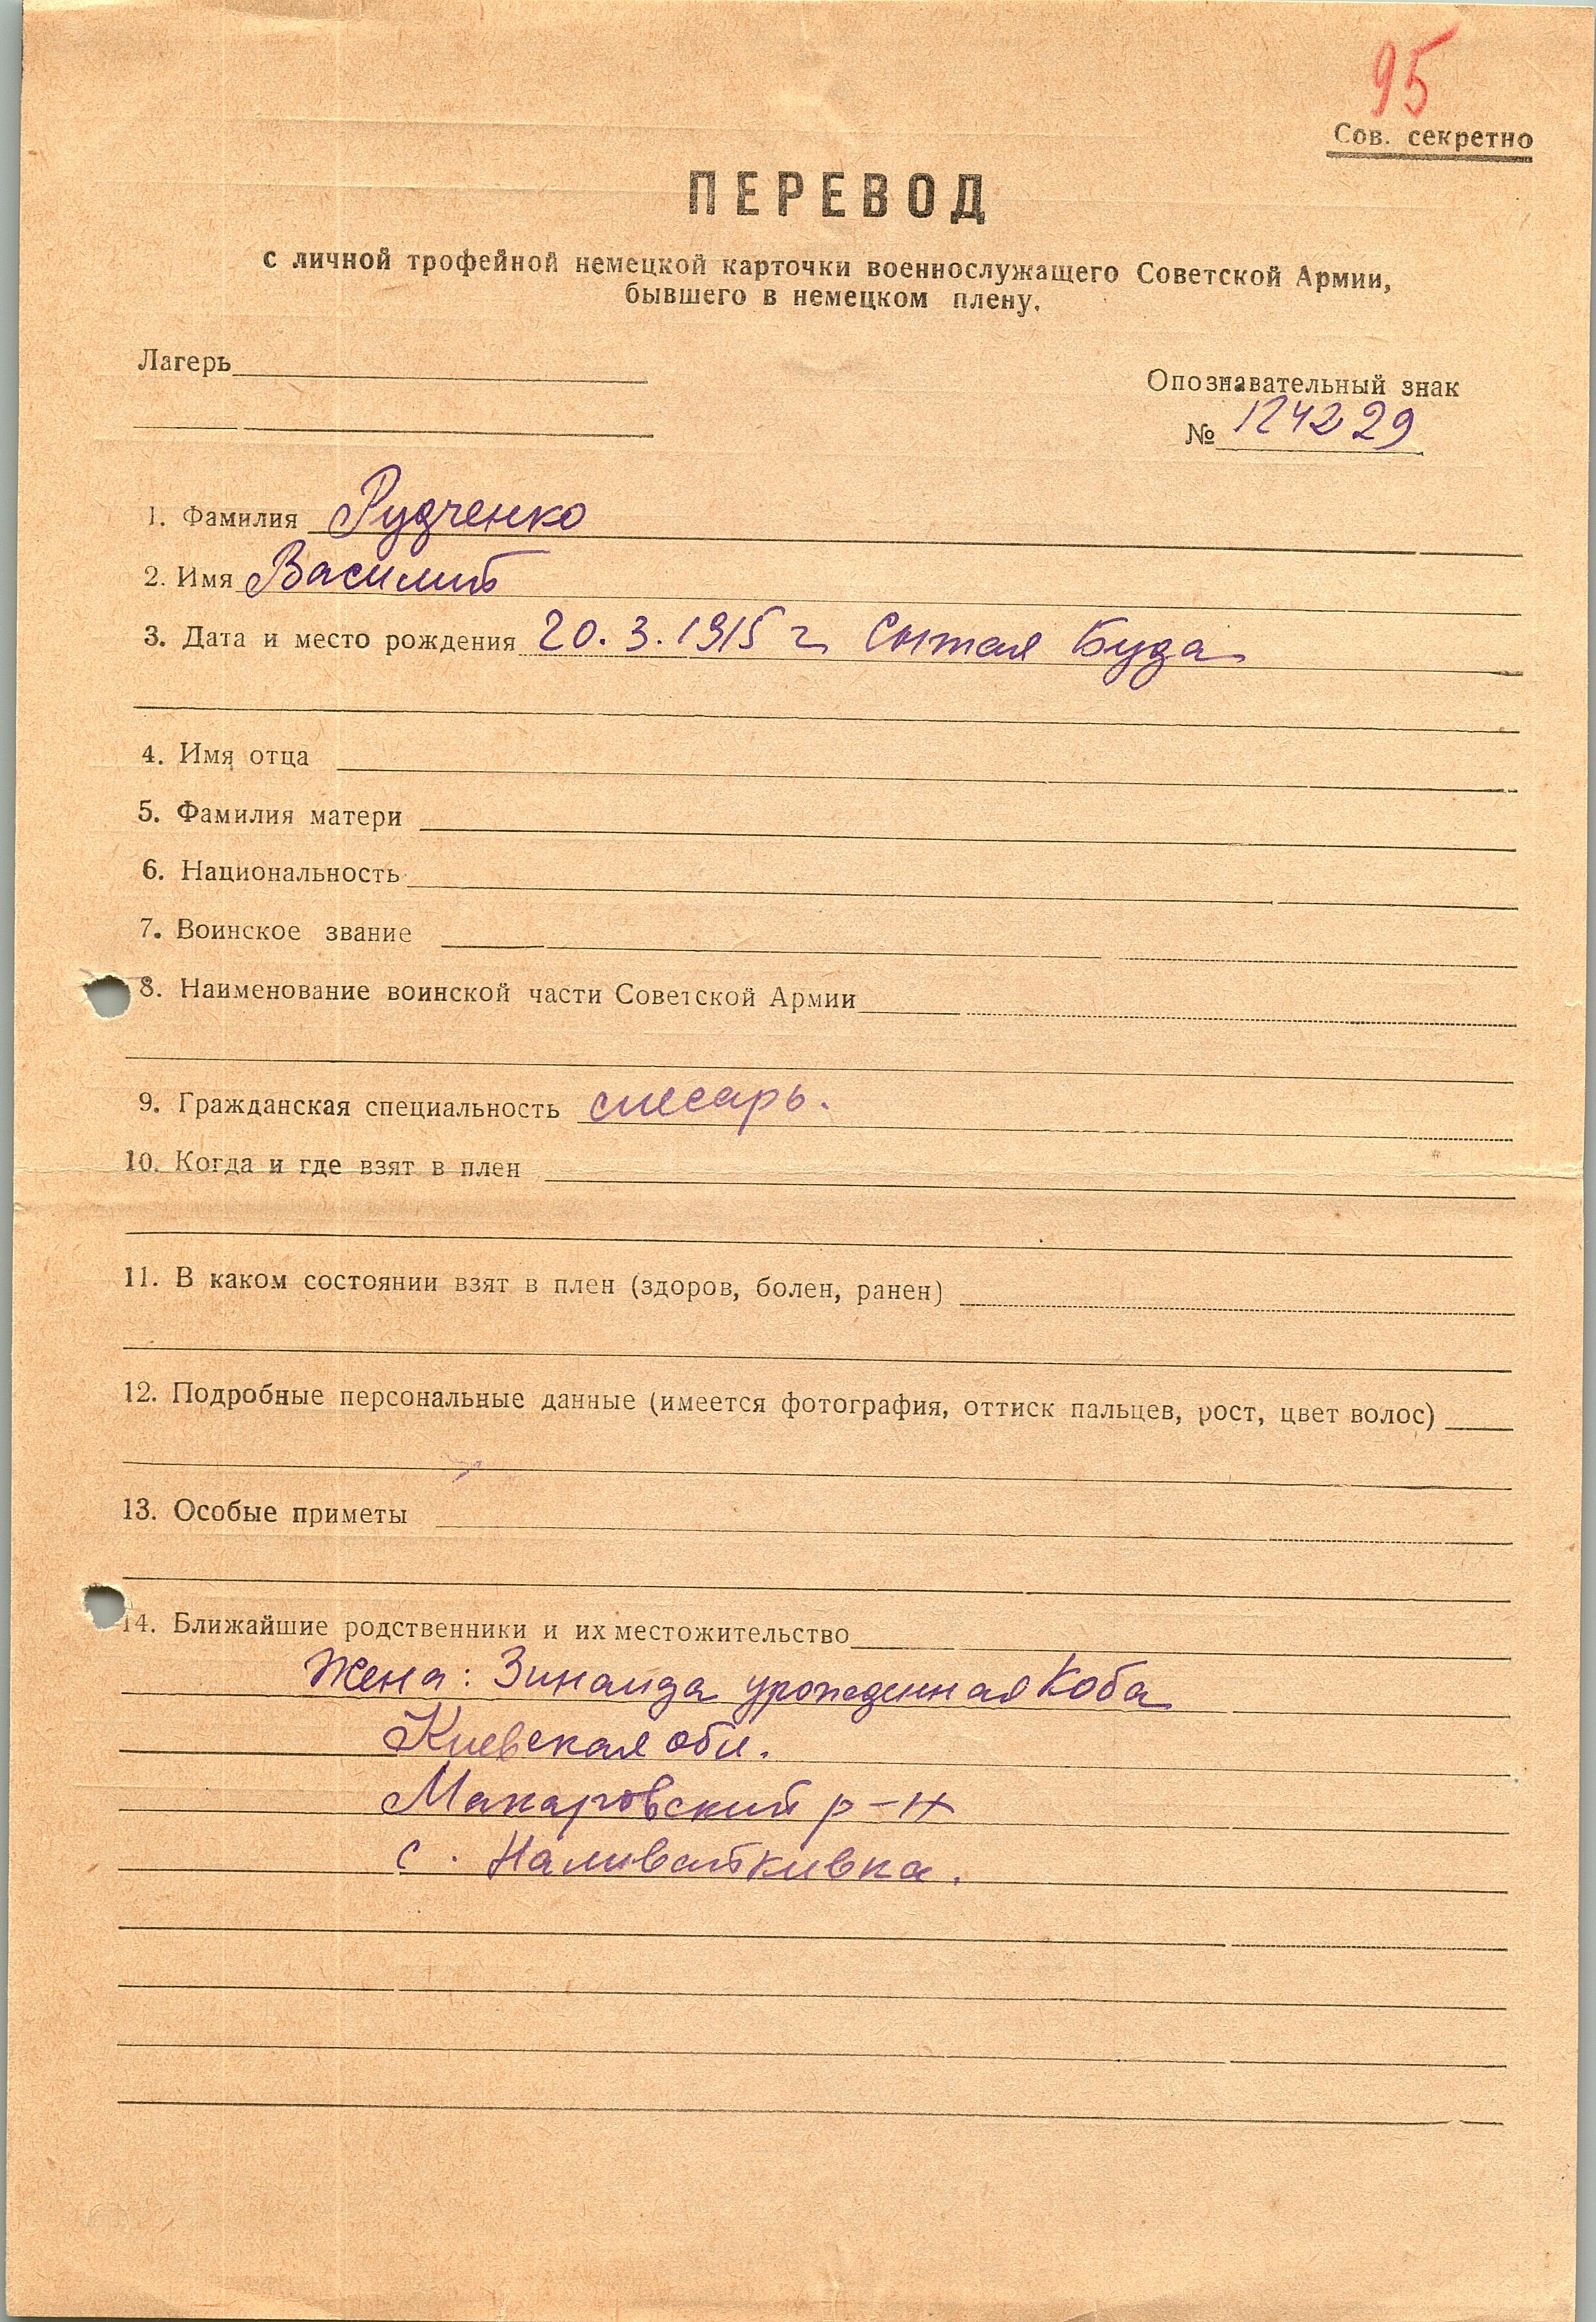 95
Сов. секретно
ПЕРЕВОД
с личной трофейной немецкой карточки военнослужащего Советской Армии,
бывшего в немецком плену.
Лагерь
Опознавательный знак
№ 124229
1. Фамилия Рудченко
2. Имя Василий
3. Дата и место рождения 20.3.1915 г. Сытая Буда
4. Имя отца
5. Фамилия матери
6. Национальность
7. Воинское звание
8. Наименование воинской части Советской Армии
9. Гражданская специальность слесарь.
10. Когда и где взят в плен
11. В каком состоянии взят в плен (здоров, болен, ранен)
12. Подробные персональные данные (имеется фотография, оттиск пальцев, рост, цвет волос)
13. Особые приметы
14. Ближайшие родственники и их местожительство
Жена: Зинаида урожденная Коба
Киевская обл.
Макаровский р-н
с. Наливайкивка.